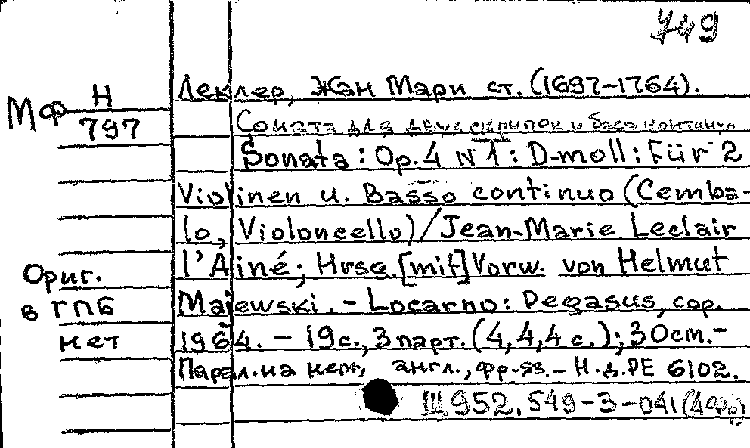 749
Леклер, Жан Мари ст. (1697-1764).
МФ Н
797
Соната для двух скрипок и баса континуо
Sonata : Op. 4 N 1 : D-moll : Für 2
Violinen u. Basso continuo (Cemba-
lo, Violoncello) / Jean-Marie Leclair
l'Ainé; Hrsg. [mit] Vorw. von Helmut
Ориг.
в ГПБ
нет
Majewski. - Locarno: Pegasus, cop.
1964. - 19 с., 3 парт. (4,4,4 с.); 30 см. -
Парал. на нем., англ., фр. яз. - Н.д. PE 6102.
Ш 952.549-3-041